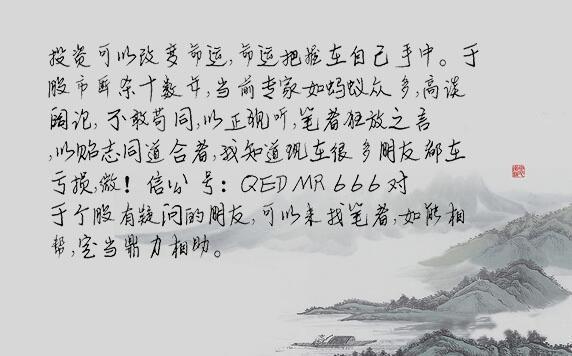 投资可以改变命运,命运把握在自己手中。于
股市厮杀十数年,当前专家如蚂蚁众多,高谈
阔论,不敢苟同,以正视听,笔者狂放之言
,以贻志同道合者,我知道现在很多朋友都在
亏损,微!信公号:QEDMR666对
于个股有疑问的朋友,可以来找笔者,如能相
帮,定当鼎力相助。